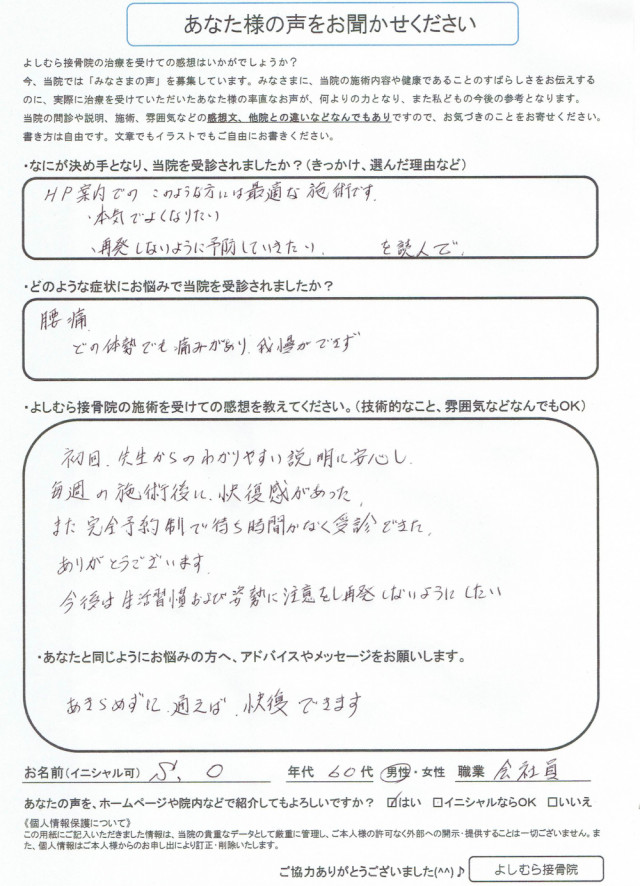 あなた様の声をお聞かせください
よしむら接骨院の治療を受けての感想はいかがでしょうか?
今、当院では「みなさまの声」を募集しています。みなさまに、当院の施術内容や健康であることのすばらしさをお伝えする
のに、実際に治療を受けていただいたあなた様の率直なお声が、何よりの力となり、また私どもの今後の参考となります。
当院の問診や説明、施術、雰囲気などの感想文、他院との違いなどなんでもありですので、お気づきのことをお寄せください。
書き方は自由です。文章でもイラストでもご自由にお書きください。
・なにが決め手となり、当院を受診されましたか?(きっかけ、選んだ理由など)
HP案内での このような方には最適な施術です.
・本気でよくなりたい
・再発しないように予防していきたい. を読んで.
・どのような症状にお悩みで当院を受診されましたか?
腰痛
どの体勢でも痛みがあり.我慢ができず
・よしむら接骨院の施術を受けての感想を教えてください。(技術的なこと、雰囲気などなんでもOK)
初回.先生からのわかりやすい説明に安心し.
毎週の施術後に.快復感があった.
また完全予約制で待ち時間がなく受診できた.
ありがとうございます.
今後は生活習慣および姿勢に注意をし再発しないようにしたい
・あなたと同じようにお悩みの方へ、アドバイスやメッセージをお願いします。
あきらめずに.通えば.快復できます
お名前(イニシャル可) S. O 年代 60代 男性・女性 職業 会社員
あなたの声を、ホームページや院内などで紹介してもよろしいですか? ☑はい □イニシャルならOK □いいえ
《個人情報保護について》
この用紙にご記入いただきました情報は、当院の貴重なデータとして厳重に管理し、ご本人様の許可なく外部への開示・提供することは一切ございません。ま
た、個人情報はご本人様からのお申し出により訂正・削除いたします。
ご協力ありがとうございました(^^)♪ よしむら接骨院